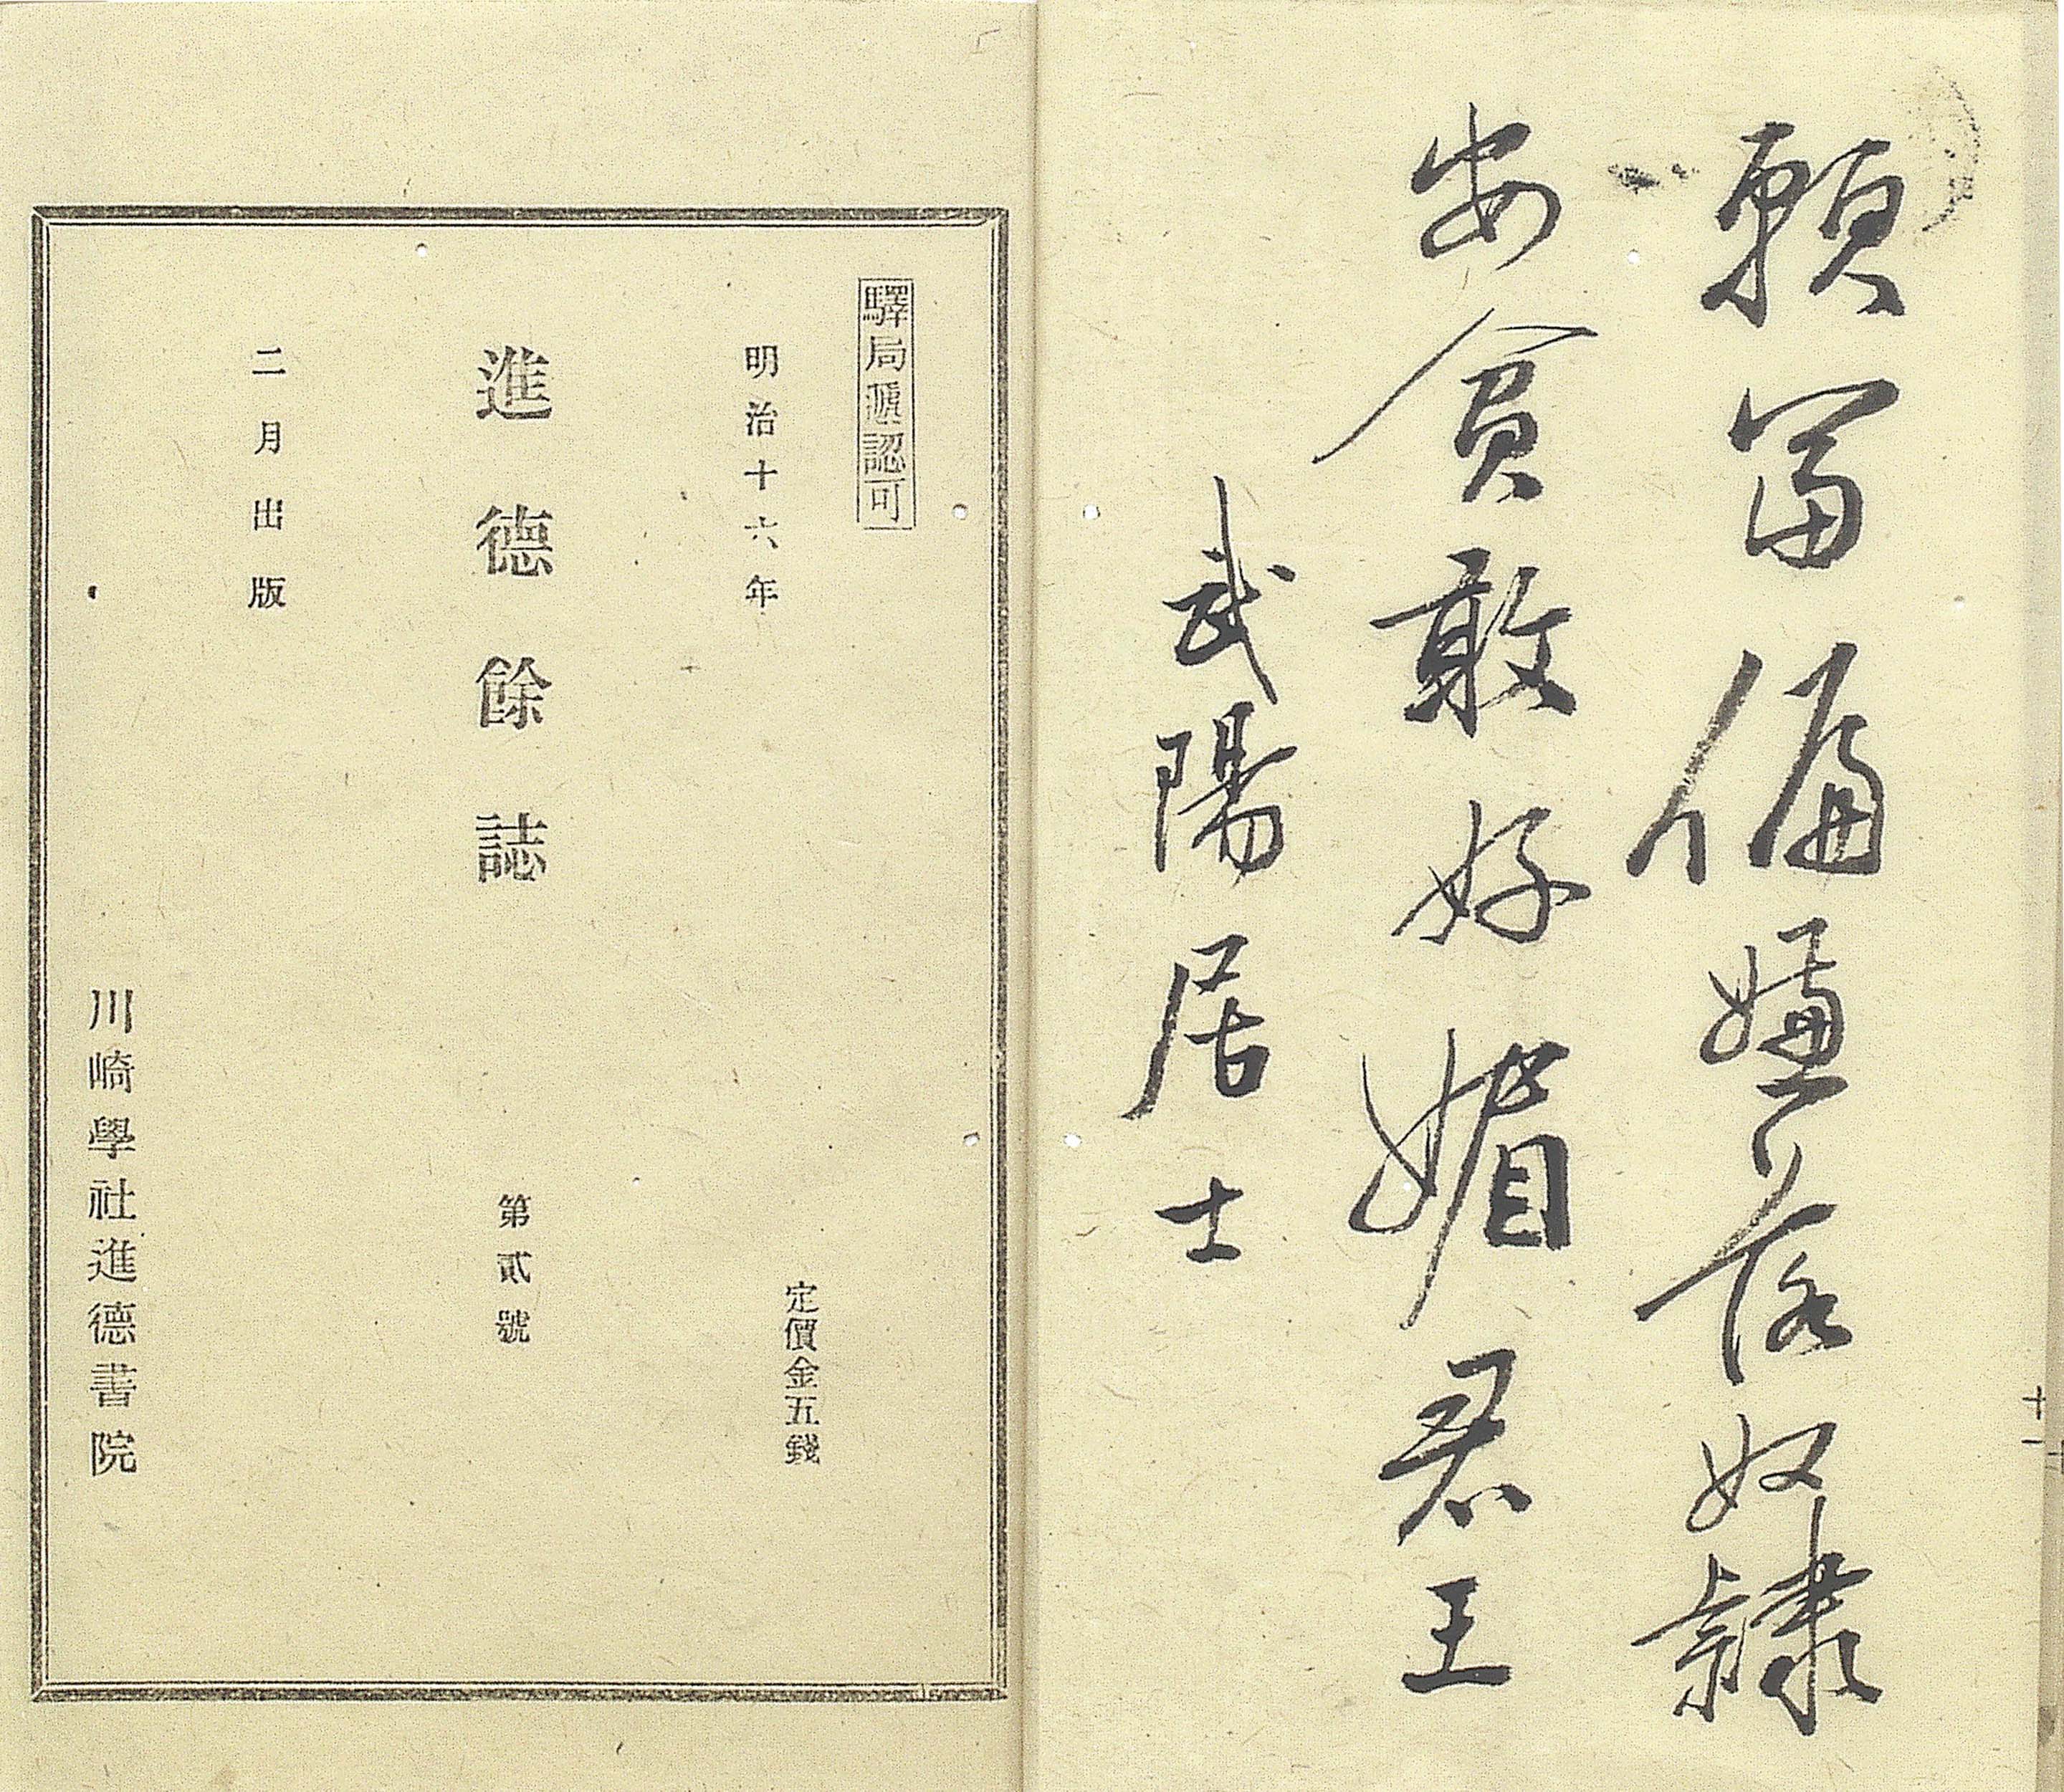 十一
願富偏嫌落奴隷
安貧敢好媚君王
武陽居士
驛局遞認可
明治十六年
定價金五錢
進德餘誌 第貳號
二月出版
川崎學社進德書院